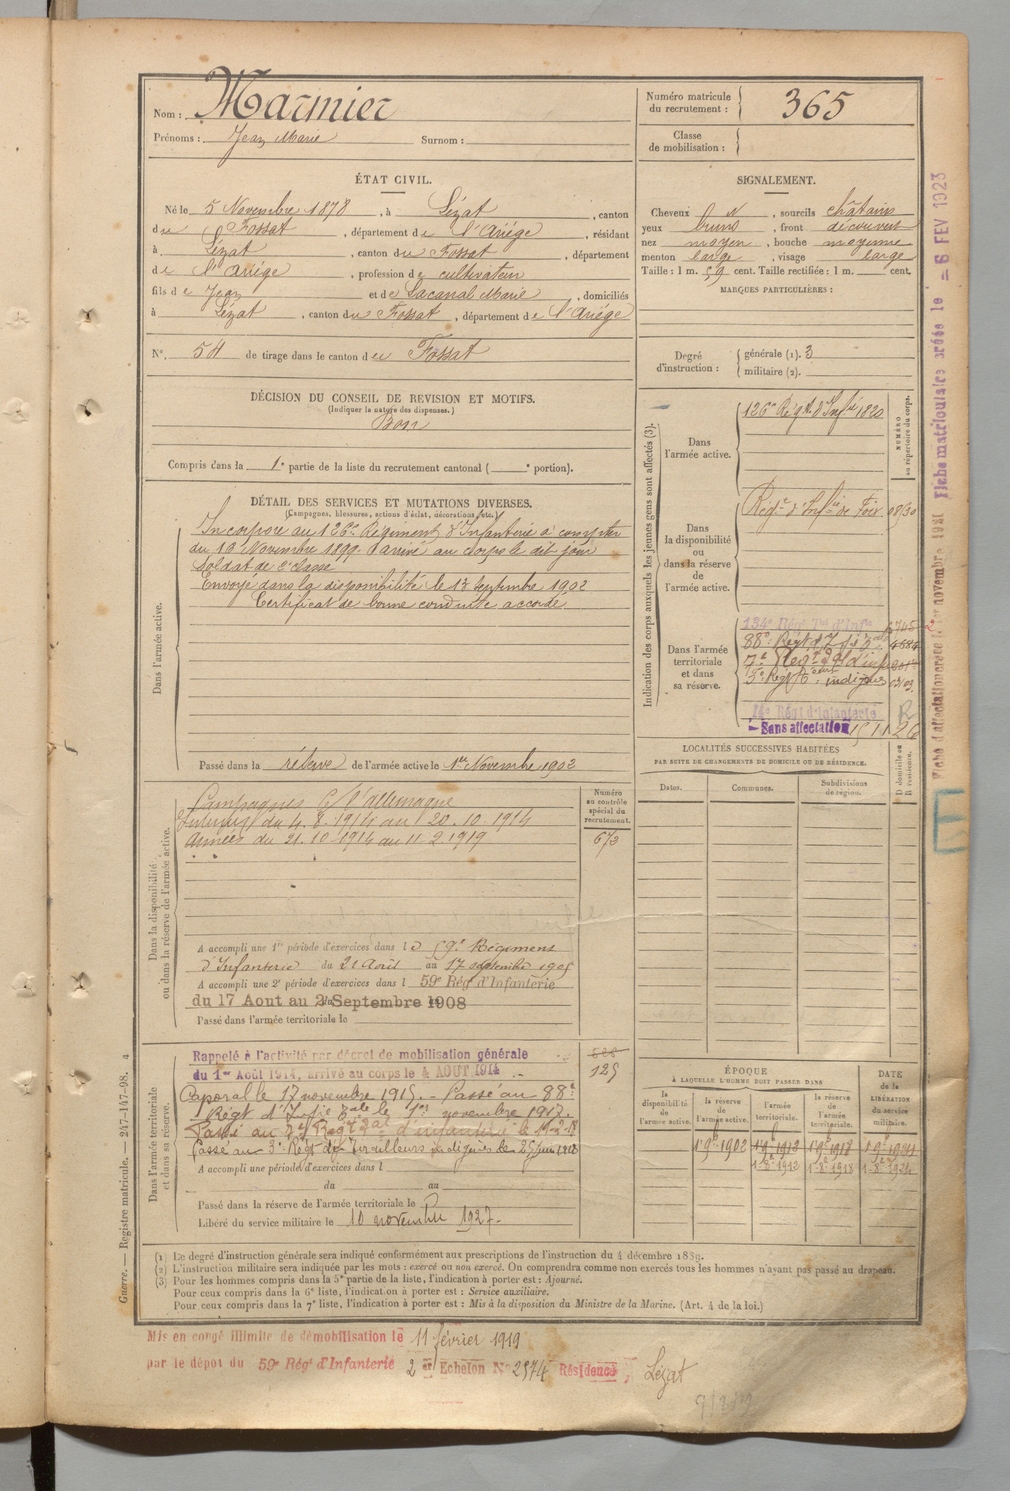 Nom : Marmier
Prénoms : Jean Marie Surnom :
Numéro matricule du recrutement : 365
Classe de mobilisation :
ÉTAT CIVIL.
Né le 5 Novembre 1878, à Lézat, canton
du Fossat, département de l'Ariège, résidant
à Lézat, canton du Fossat, département
de l'Ariège, profession de cultivateur
fils de Jean et de Lacanal Marie, domiciliés
à Lézat, canton du Fossat, département de l'Ariège
N° 54 de tirage dans le canton du Fossat
SIGNALEMENT.
Cheveux N, sourcils châtains
yeux bruns, front découvert
nez moyen, bouche moyenne
menton large, visage large
Taille : 1 m. 59 cent. Taille rectifiée : 1 m. cent.
MARQUES PARTICULIÈRES :
Degré d'instruction : générale (1). 3
militaire (2).
DÉCISION DU CONSEIL DE REVISION ET MOTIFS.
(Indiquer la nature des dispenses.)
Bon
Compris dans la 1e partie de la liste du recrutement cantonal ( e portion).
DÉTAIL DES SERVICES ET MUTATIONS DIVERSES.
(Campagnes, blessures, actions d'éclat, décorations, etc.)
Dans l'armée active.
Incorporé au 126e Régiment d'Infanterie à compter
du 16 Novembre 1899. Arrivé au corps le dit jour
soldat de 2e classe
Envoyé dans la disponibilité le 13 Septembre 1902
Certificat de bonne conduite accordé.
Passé dans la réserve de l'armée active le 1er Novembre 1902
Indication des corps auxquels les jeunes gens sont affectés (3).
NUMÉRO au répertoire du corps.
Dans l'armée active.
126e Régt. d'Infie 1820
Dans la disponibilité ou dans la réserve de l'armée active.
Régt d'Infie de Foix
Dans l'armée territoriale et dans sa réserve.
134e Régt Tal d'Infie
88e Régt
3e Régt indigènes
14e Régt d'Infanterie
Sans affectation
LOCALITÉS SUCCESSIVES HABITÉES
PAR SUITE DE CHANGEMENTS DE DOMICILE OU DE RÉSIDENCE.
D domicile ou R résidence.
Dates. Communes. Subdivisions de région.
Dans la disponibilité ou dans la réserve de l'armée active.
Numéro au contrôle spécial du recrutement.
Campagnes C/ l'allemagne
Intérieur du 4.8.1914 au 20.10.1914
Armées du 21.10.1914 au 11.2.1919
A accompli une 1re période d'exercices dans le 59e Régiment
d'Infanterie du 21 Août au 17 septembre 1905
A accompli une 2e période d'exercices dans l 59e Rég d'Infanterie
du 17 Aout au 2 Septembre 1908
Passé dans l'armée territoriale le
Dans l'armée territoriale et dans sa réserve.
Rappelé à l'activité par décret de mobilisation générale
du 1er Août 1914, arrivé au corps le 4 AOUT 1914
125
Caporal le 17 novembre 1915. Passé au 88e
Régt d'Infie Tale le 1er novembre 1917.
Passé au 7e Régt Tal d'infanterie le
Passé au 3e Régt de Tirailleurs indigènes le 25 juin 1918
A accompli une période d'exercices dans l
du au
Passé dans la réserve de l'armée territoriale le
Libéré du service militaire le 10 novembre 1927.
ÉPOQUE
À LAQUELLE L'HOMME DOIT PASSER DANS
la disponibilité de l'armée active. la réserve de l'armée active. l'armée territoriale. la réserve de l'armée territoriale. DATE de la LIBÉRATION du service militaire.
1 9e 1902 1 9e 1912 1 9e 1918 1 9e 1924
1 8e 1912 1 8e 1918 1 8e 1924
(1) Le degré d'instruction générale sera indiqué conformément aux prescriptions de l'instruction du 4 décembre 1889.
(2) L'instruction militaire sera indiquée par les mots : exercé ou non exercé. On comprendra comme non exercés tous les hommes n'ayant pas passé au drapeau.
(3) Pour les hommes compris dans la 5e partie de la liste, l'indication à porter est : Ajourné.
Pour ceux compris dans la 6e liste, l'indication à porter est : Service auxiliaire.
Pour ceux compris dans la 7e liste, l'indication à porter est : Mis à la disposition du Ministre de la Marine. (Art. 4 de la loi.)
Mis en congé illimité de démobilisation le 11 février 1919
par le dépôt du 59e Régt d'Infanterie 2er Echelon N° 2574 Résidence, Lézat
Guerre. — Registre matricule. — 247-147-98.
Fiche matriculaire créée le 6 FEV 1923